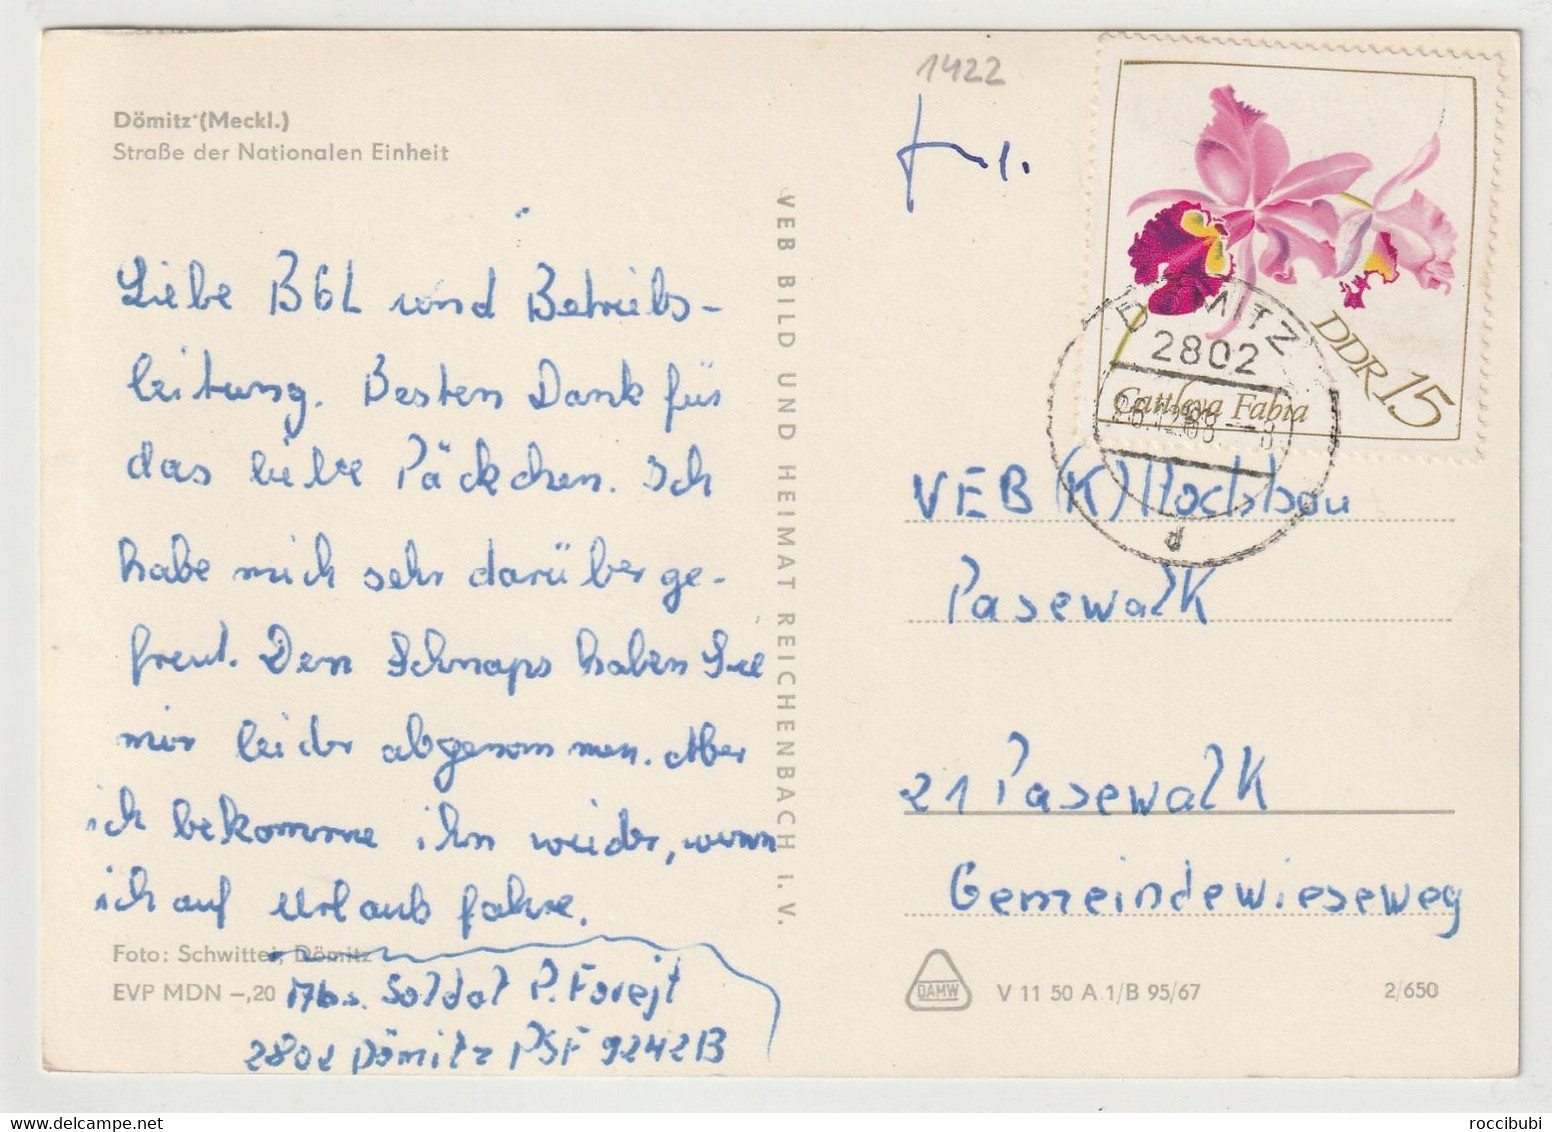 1422
Dömitz (Meckl.)
Straße der Nationalen Einheit
Liebe BGL und Betriebs-
leitung. Besten Dank für
das liebe Päckchen. Ich
habe mich sehr darüber ge-
freut. Den Schnaps haben Sie
mir leider abgenommen. Aber
ich bekomme ihn wieder, wenn
ich auf Urlaub fahre.
Foto: Schwitter, Dömitz
EVP MDN –,20
Abs. Soldat P. Forejt
2802 Dömitz PSF 9242B
VEB BILD UND HEIMAT REICHENBACH I. V.
DDR 15
Cattleya Fabia
DÖMITZ
2802
d
VEB (K) Hochbau
Pasewalk
21 Pasewalk
Gemeindewieseweg
DAMW
V 11 50 A 1/B 95/67
2/650
roccibubi